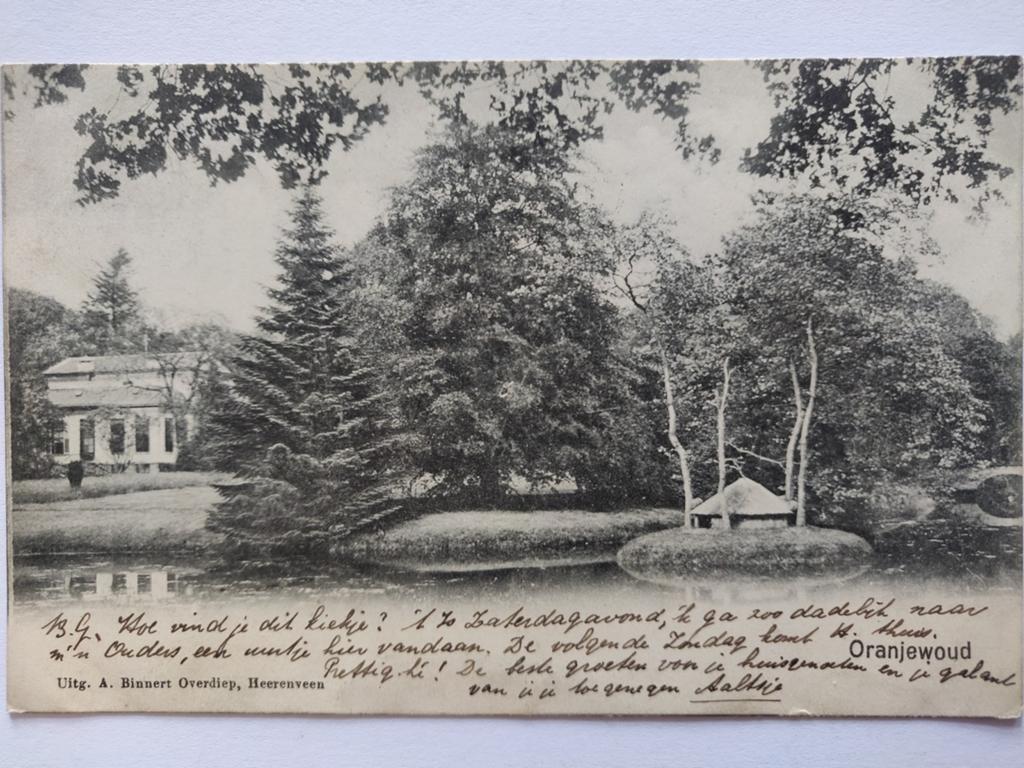 B.G. Hoe vind je dit kiekje? 't Is Zaterdagavond, 'k ga zoo dadelijk naar
m'n Ouders, een uurtje hier vandaan. De volgende Zondag komt H. thuis.
Oranjewoud
Prettig hè! De beste groeten von je huisgenoten en je galant
Uitg. A. Binnert Overdiep, Heerenveen
van je je toegenegen Aaltje